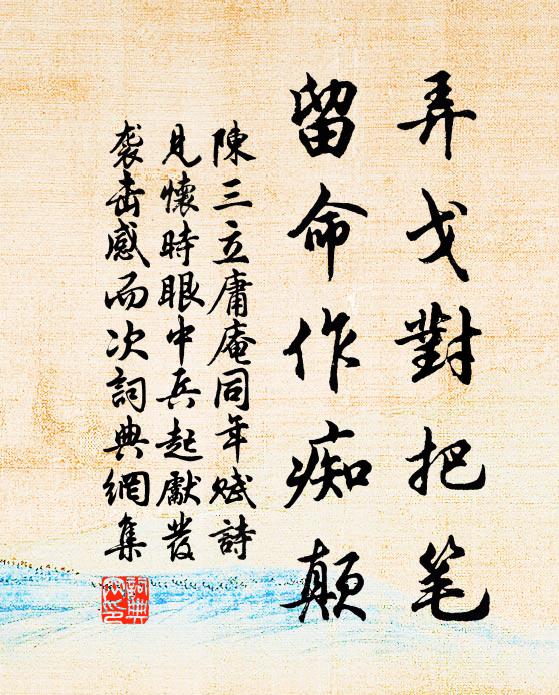 弄戈對把笔
留命作痴顛
陳三立庸庵同年賦詩
見懷時眼中兵起獻發
袭击感而次詞典網集